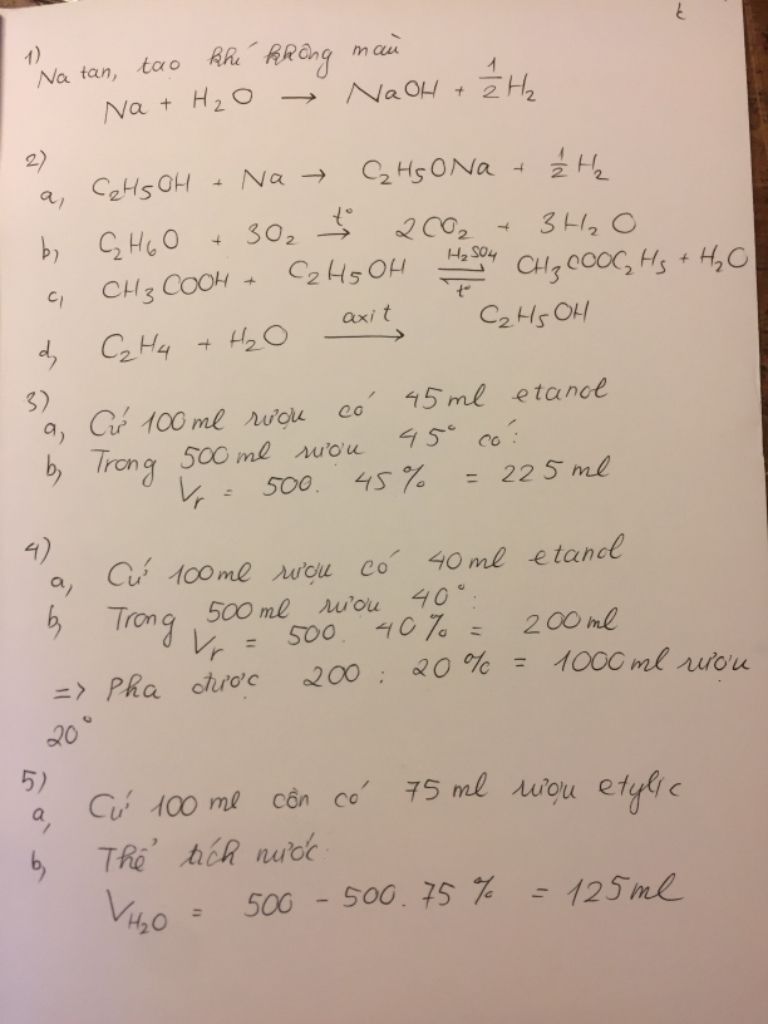 t
1)
Na tan, tạo khí không màu
Na + H2O → NaOH + 1/2 H2
2)
a, C2H5OH + Na → C2H5ONa + 1/2 H2
b, C2H6O + 3O2 t°→ 2CO2 + 3H2O
c, CH3COOH + C2H5OH H2SO4 ⇌ t° CH3COOC2H5 + H2O
d, C2H4 + H2O axit→ C2H5OH
3)
a, Cứ 100ml rượu có 45ml etanol
b, Trong 500ml rượu 45° có:
Vr = 500. 45% = 225 ml
4)
a, Cứ 100ml rượu có 40ml etanol
b, Trong 500ml rượu 40°:
Vr = 500. 40% = 200ml
=> Pha được 200 : 20% = 1000ml rượu
20°
5)
a, Cứ 100 ml cồn có 75 ml rượu etylic
b, Thể tích nước:
VH2O = 500 - 500. 75 % = 125ml